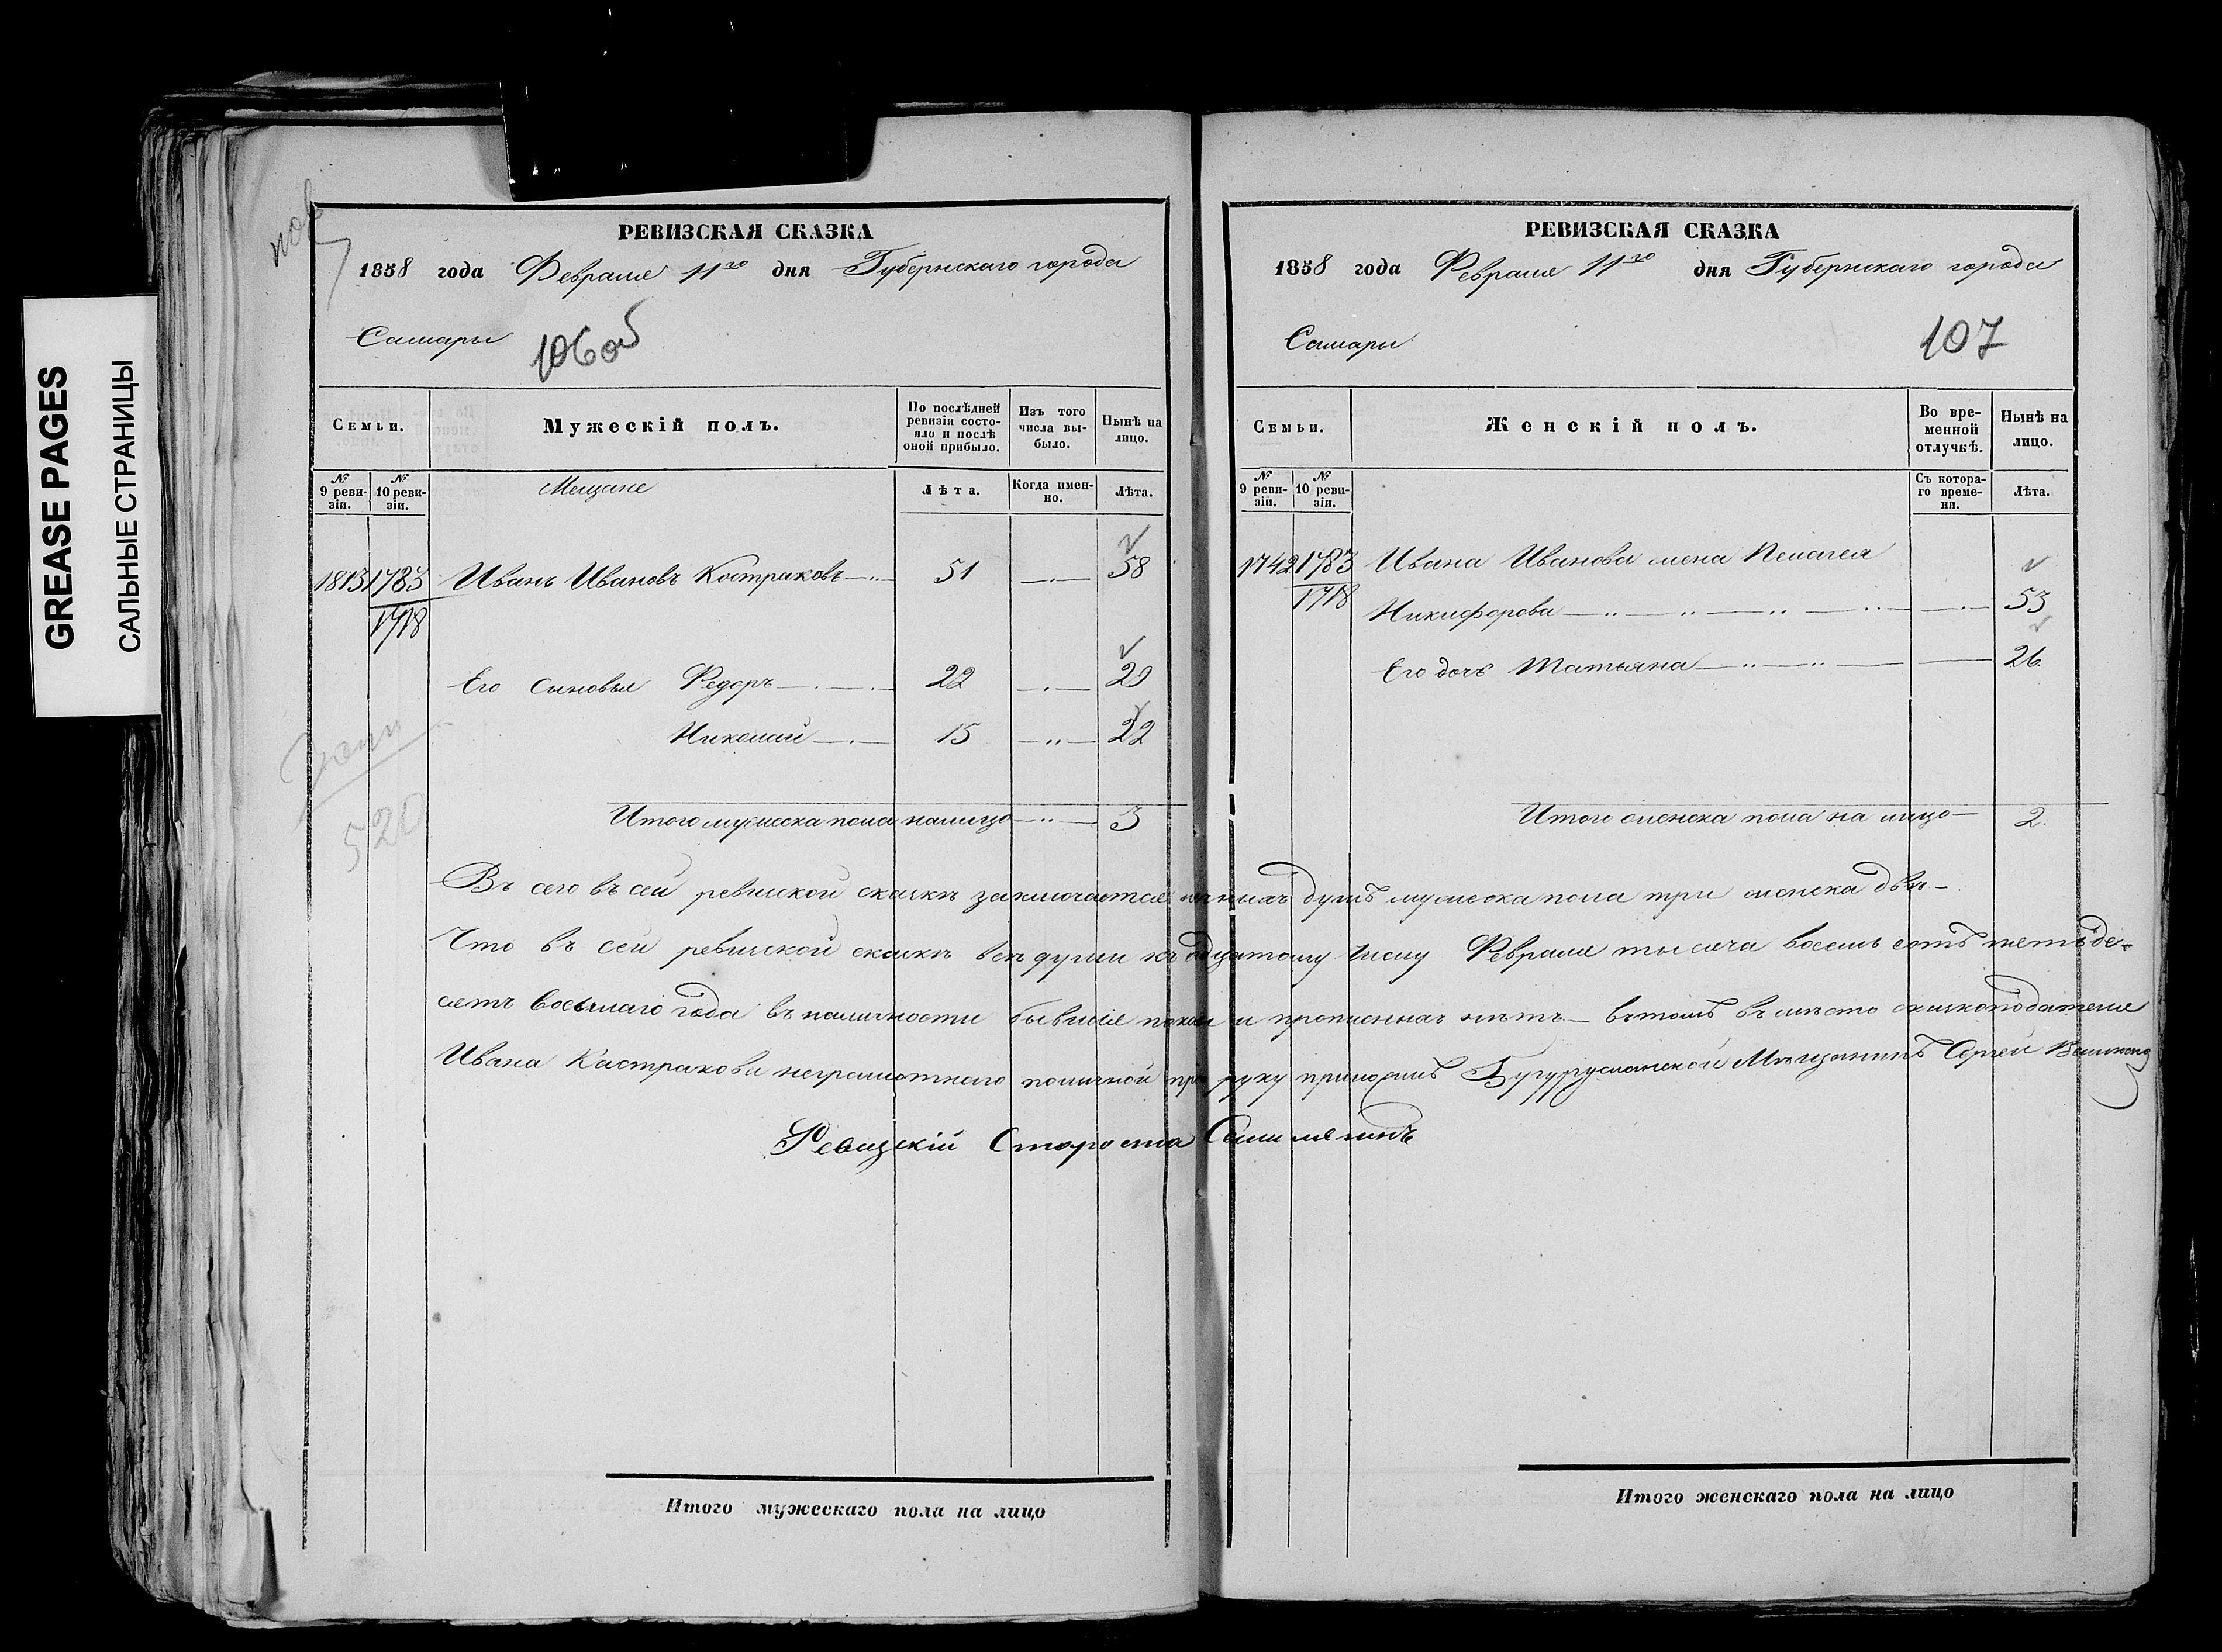 GREASE PAGES
САЛЬНЫЕ СТРАНИЦЫ
РЕВИЗСКАЯ СКАЗКА
1858 года Февраля 11го дня Губернскаго города
Самары
106об
Семьи.
Мужескій полъ.
По послѣдней ревизіи состояло и послѣ оной прибыло.
Изъ того числа выбыло.
Нынѣ на лицо.
№ 9 ревизіи.
№ 10 ревизіи.
Мещане
Лѣта.
Когда именно.
Лѣта.
1813 1783 Иванъ Ивановъ Костраковъ 51 58
1718
Его сыновья Федоръ 22 29
Николай 15 22
Итого мужеска пола налицо 3
520
РЕВИЗСКАЯ СКАЗКА
1858 года Февраля 11го дня Губернскаго города
Самары
107
Семьи.
Женскій полъ.
Во временной отлучкѣ.
Нынѣ на лицо.
№ 9 ревизіи.
№ 10 ревизіи.
Съ котораго времени.
Лѣта.
1742 1783 Ивана Иванова жена Пелагея
1718 Никифорова 53
Его дочь Татьяна 26
Итого женска пола на лицо 2
сего въ сей ревиской скаскѣ заключается душъ мужеска пола три женска двѣ
Что въ сей ревиской скаскѣ всѣ души къ числу Февраля тысяча восемь сотъ петьде-
сетъ восьмаго года въ наличности бывшия и прописныхъ нѣтъ въ томъ въ место скаскоподателя
Ивана Кастракова неграмотного руку приложилъ Бугурусланской Мещанинъ Сергей
Ревизскій Староста
Итого мужескаго пола на лицо
Итого женскаго пола на лицо